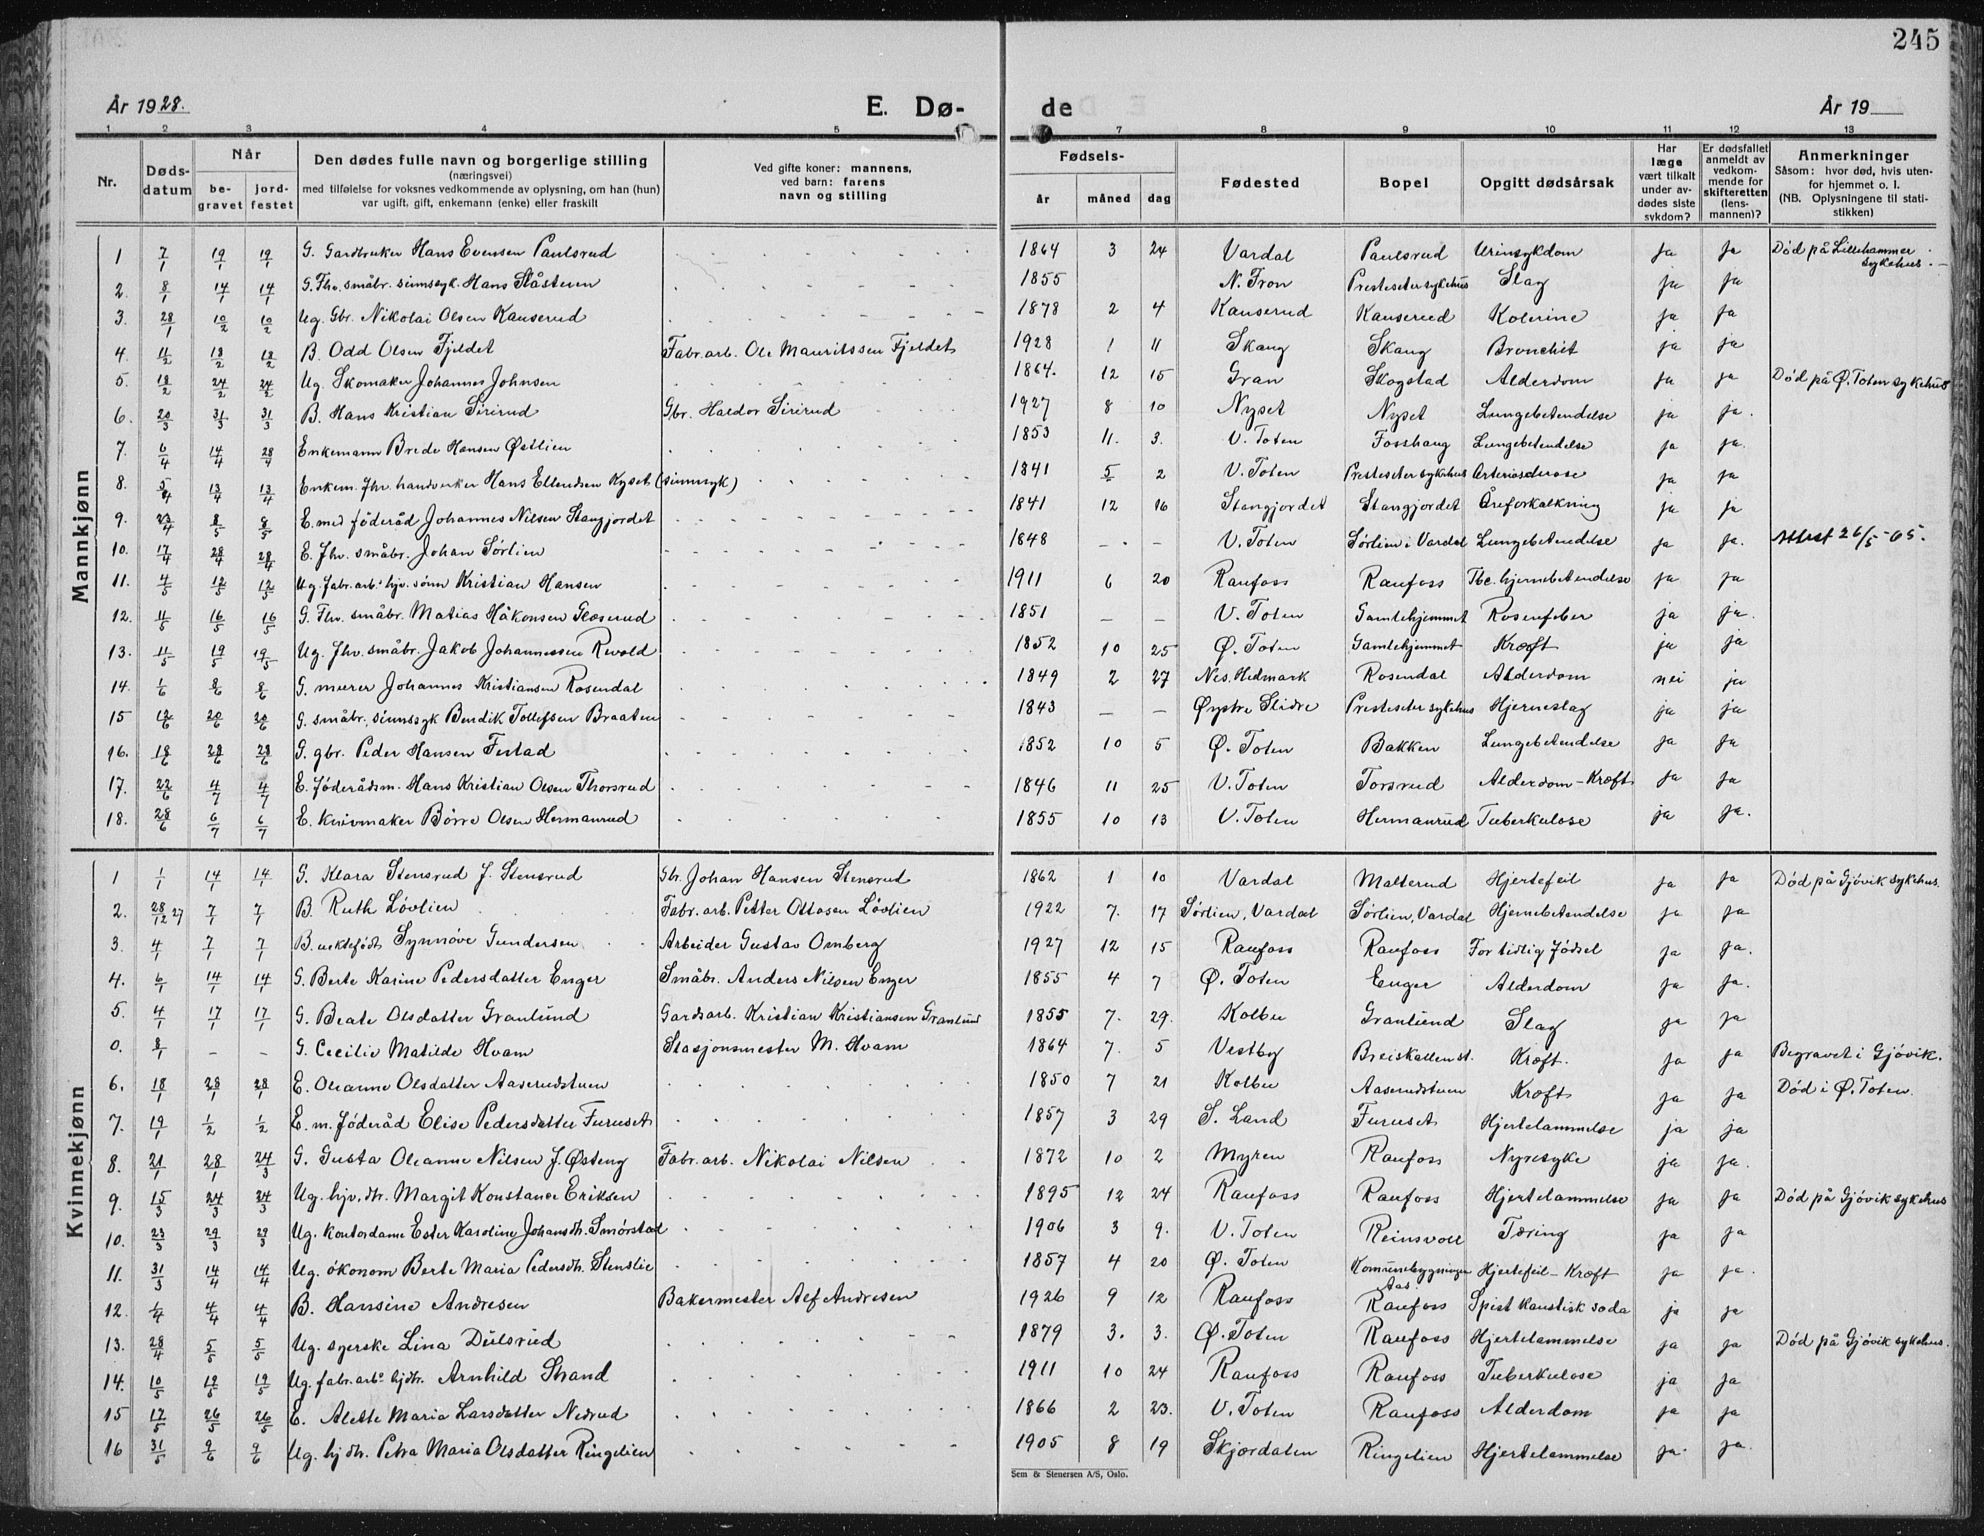 245
År 1928. E. Dø- de År 19
1 2 3 4 5 7 8 9 10 11 12 13
Nr. Døds-datum Når be-gravet jord-festet Den dødes fulle navn og borgerlige stilling (næringsvei) med tilføielse for voksnes vedkommende av oplysning, om han (hun) var ugift, gift, enkemann (enke) eller fraskilt Ved gifte koner: mannens, ved barn: farens navn og stilling Fødsels- år måned dag Fødested Bopel Opgitt dødsårsak Har læge vært tilkalt under av-dødes siste sykdom? Er dødsfallet anmeldt av vedkom-mende for skifteretten (lens-mannen)? Anmerkninger Såsom: hvor død, hvis uten-for hjemmet o. l. (NB. Oplysningene til stati-stikken)
Mannkjønn
1 7/1 19/1 19/1 G. Gardbruker Hans Evensen Paulsrud 1864 3 24 Vardal Paulsrud Urinsykdom ja ja Død på Lillehammer sykehus.
2. 8/1 14/1 14/1 G. Fhv. småbr. sinnssyk. Hans Ståstuen 1855 N. Fron Presteseter sykehus Slag ja ja
3. 28/1 10/2 10/2 Ug. Gbr. Nikolai Olsen Kanserud 1878 2 4 Kanserud Kanserud Kolerine ja ja
4. 11/2 18/2 18/2 B. Odd Olsen Fjeldet Fabr. arb. Ole Mauritssen Fjeldet 1928 1 11 Skang Skang Bronchit ja ja
5. 18/2 24/2 24/2 Ug. Skomaker Johannes Johnsen 1864. 12 15 Gran Skogstad Alderdom ja ja Død på Ø. Toten sykehus
6. 20/3 31/3 31/3 B. Hans Kristian Sirirud Gbr. Haldor Sirirud 1927 8 10 Nyset Nyset Lungebetendelse ja ja.
7. 6/4 14/4 28/4 Enkemann Brede Hansen Østlien 1853 11. 3. V. Toten Fosshaug Lungebetendelse ja ja.
8. 5/4 13/4 13/4 Enkem. fhv. handverker Hans Ellendsen Kyset (sinnsyk) 1841 5 2 V. Toten Presteseter sykehus ja ja
9. 23/4 8/5 8/5 E. med föderåd Johannes Nilsen Stangjordet 1841 12 16 Stangjordet Stangjordet Åreforkalkning ja ja
10. 17/4 28/4 28/4 E. fhv. småbr. Johan Sørlien 1848 - - V. Toten Sørlien i Vardal Lungebetendelse ja ja. Attest 26/5-65.
11. 4/5 12/5 12/5 Ug. fabr. arb. hjv. sønn Kristian Hansen 1911 6 20 Raufoss Raufoss Tbc. hjernebetendelse ja ja
12. 11/5 16/5 16/5 G. Fhv. småbr. Matias Håkonsen Glæserud 1851 - - V. Toten Gamlehjemmet Rosenfeber ja ja.
13. 11/5 19/5 19/5 Ug. fhv. småbr. Jakob Johannessen Revold 1852 10 25 Ø. Toten Gamlehjemmet Kræft ja ja
14. 1/6 8/6 8/6 G. murer Johannes Kristiansen Rosendal 1849 2 27 Nes. Hedmark Rosendal Alderdom nei ja
15 12/6 20/6 20/6 G. småbr., sinnssyk Bendik Tollefsen Braaten 1843 - - Øystre Slidre Presteseter sykehus Hjerneslag ja ja
16. 18/6 28/6 28/6 G. gbr. Peder Hansen Festad 1852 10 5 Ø. Toten Bakken Lungebetendelse ja ja
17. 22/6 4/7 4/7 E. föderådsm. Hans Kristian Olsen Thorsrud 1846 11 25 V. Toten Torsrud Alderdom - Kræft ja ja
18. 28/6 6/7 6/7 E. knivmaker Börre Olsen Hermanrud 1855 10 13 V. Toten Hermanrud Tuberkulose ja ja.
Kvinnekjønn
1 1/1 14/1 14/1 G. Klara Stensrud f. Stensrud Gbr. Johan Hansen Stensrud 1862 1 10 Vardal Malterud Hjertefeil ja ja Død på Gjövik sykehus.
2. 28/12 27 7/1 7/1 B. Ruth Lövlien Fabr. arb. Petter Ottosen Lövlien 1922 7. 17 Sørlien, Vardal Sørlien, Vardal Hjernebetendelse ja ja
3. 4/1 7/1 7/1 B. uektefödt Synnöve Gundersen Arbeider Gustav Omberg 1927 12 15 Raufoss Raufoss For tidlig födsel ja ja.
4. 6/1 14/1 14/1 G. Berte Karine Pedersdatter Enger Småbr. Anders Nilsen Enger 1855 4 7 Ø. Toten Enger Alderdom ja ja.
5. 4/1 17/1 17/1 G. Beate Olsdatter Granlund Gardsarb. Kristian Kristiansen Granlund 1855 7. 29. Kolbu Granlund Slag ja ja
0. 8/1 - - G. Cecilie Matilde Hvam Stasjonsmester M. Hvam 1864 7. 5 Vestby Breiskallen st. Kræft. ja ja Begravet i Gjövik.
6. 18/1 28/1 28/1 E. Oleanne Olsdatter Aaserudstuen 1850 7 21 Kolbu Aaserudstuen Kræft ja ja Död i Ø. Toten.
7. 19/1 1/2 1/2 E. m. föderåd Elise Pedersdatter Furuset 1857 3 29 S. Land Furuset Hjertelammelse ja ja
8. 21/1 28/1 24/3 G. Gusta Oleanne Nilsen f. Østeng Fabr. arb. Nikolai Nilsen 1872 10 2 Myren Raufoss Nyresyke ja ja.
9. 15/3 24/3 24/3 Ug. hjv. dtr. Margit Konstanse Eriksen 1895 12 24 Raufoss Raufoss Hjertelammelse ja ja Död på Gjövik sykehus
10. 23/3 29/3 29/3 Ug. kontordame Ester Karoline Johansdtr. Smörstad 1906 3 9. V. Toten Reinsvoll Tæring ja ja
11. 31/3 14/4 14/4 Ug. økonom Berte Maria Pedersdtr. Stenslie 1857 4 20 Ø. Toten Komunebygningen Aas Hjertefeil - Kræft ja ja.
12. 1/4 4/4 4/4 B. Hansine Andresen Bakermester Alf Andresen 1926 9 12 Raufoss Raufoss Spist kaustisk soda ja ja
13. 28/4 5/5 5/5 Ug. syerske Lina Dulsrud 1879 3. 3. Ø. Toten Raufoss Hjertelammelse ja ja Död på Gjövik sykehus.
14. 10/5 19/5 19/5 Ug. fabr. arb. hjdtr. Arnhild Strand 1911 10 24 Raufoss Raufoss Tuberkulose ja ja
15 17/5 26/5 26/5 E. Alette Maria Larsdatter Nedrud 1866 2 23. V. Toten Raufoss Alderdom ja ja
16 31/5 9/6 9/6 Ug. hjdtr. Petra Maria Olsdatter Ringelien 1905 8 19 Skjærdalen Ringelien Hjertelammelse ja. ja.
Sem & Stenersen A/S, Oslo.